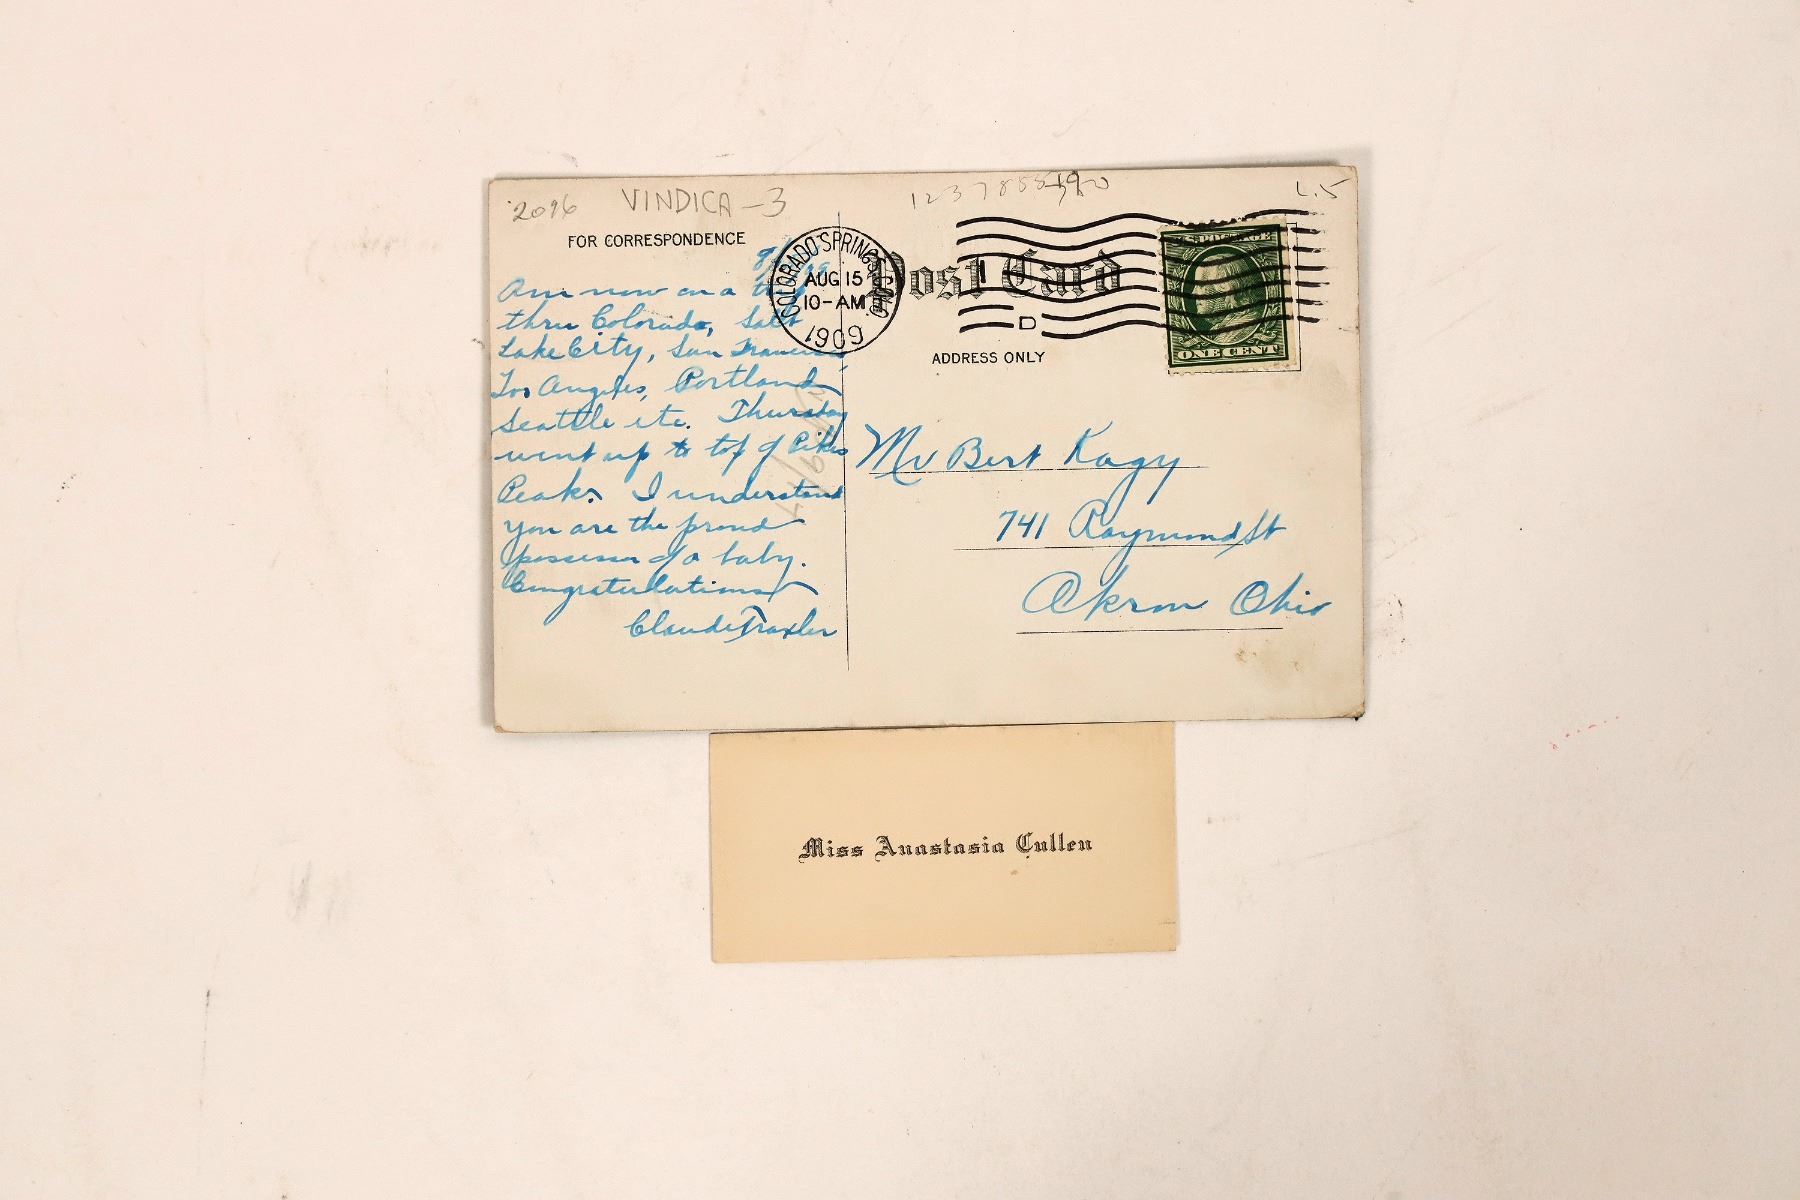 2096 VINDICA-3
L.5
FOR CORRESPONDENCE
COLORADO SPRINGS COLO.
AUG 15
10-AM
1909
Post Card
1
D
U.S. POSTAGE
ONE CENT
ADDRESS ONLY
Am now on a trip
thru Colorado, Salt
Lake City, San Francisco,
Los Angeles, Portland
Seattle etc. Thursday
went up to top of Pikes
Peak. I understand
you are the proud
possessor of a baby.
Congratulations
Claude Traxler
Mr Bert Kagy
741 Raymond St
Akron Ohio
Miss Anastasia Cullen